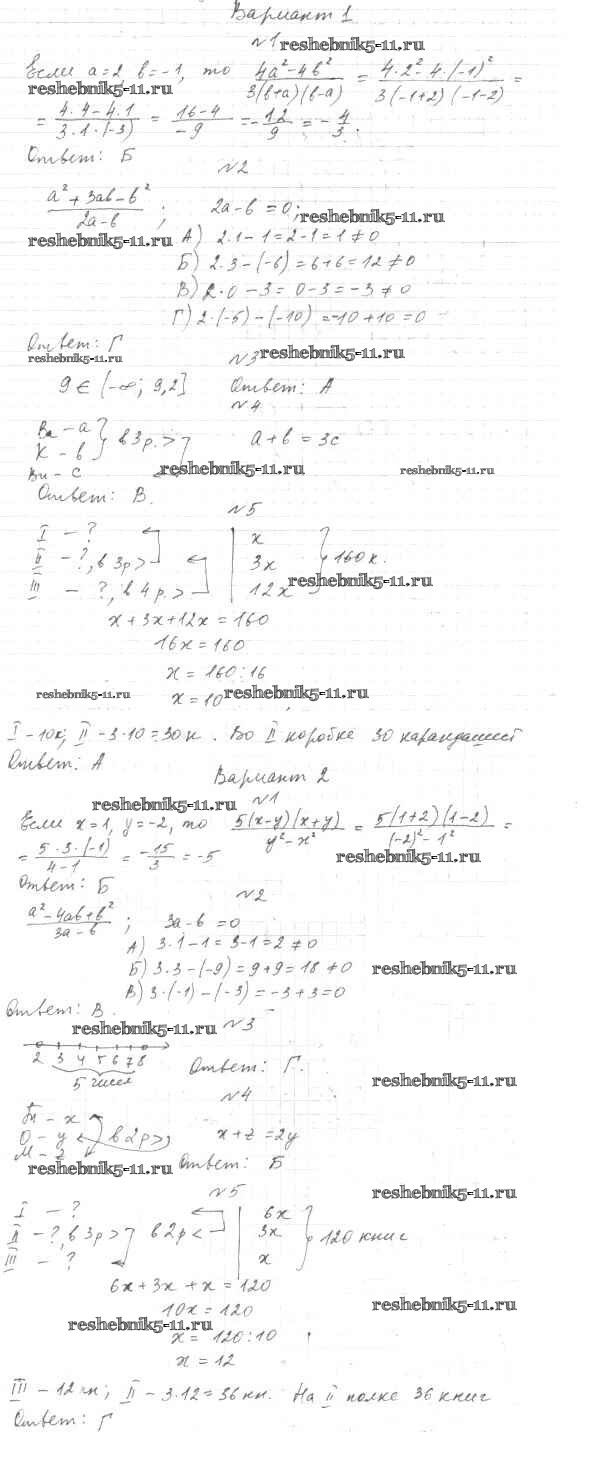 Вариант 1
№1 reshebnik5-11.ru
Если a=2, b=-1, то (4a²-4b²)/(3(b+a)(b-a)) = (4·2²-4·(-1)²)/(3(-1+2)(-1-2)) =
reshebnik5-11.ru
= (4·4-4·1)/(3·1·(-3)) = (16-4)/(-9) = -12/9 = -4/3.
Ответ: Б
№2
(a²+3ab-b²)/(2a-b); 2a-b=0; reshebnik5-11.ru
reshebnik5-11.ru А) 2·1-1=2-1=1≠0
Б) 2·3-(-6)=6+6=12≠0
В) 2·0-3=0-3=-3≠0
Г) 2·(-5)-(-10)=-10+10=0
Ответ: Г
reshebnik5-11.ru №3 reshebnik5-11.ru
9 ∈ (-∞; 9,2] Ответ: А
№4
Ва - a
К - b } в 3 р. > a+b=3c
Ви - c reshebnik5-11.ru reshebnik5-11.ru
Ответ: В.
№5
I - ? x
II - ?, в 3р > 3x } 160 к.
III - ?, в 4 р. > 12x reshebnik5-11.ru
x+3x+12x=160
16x=160
x=160:16
reshebnik5-11.ru x=10 reshebnik5-11.ru
I - 10к; II - 3·10=30к. Во II коробке 30 карандашей
Ответ: А
Вариант 2
reshebnik5-11.ru №1
Если x=1, y=-2, то (5(x-y)(x+y))/(y²-x²) = (5(1+2)(1-2))/((-2)²-1²) =
= (5·3·(-1))/(4-1) = -15/3 = -5 reshebnik5-11.ru
Ответ: Б
№2
(a²-4ab+b²)/(3a-b); 3a-b=0
А) 3·1-1=3-1=2≠0
Б) 3·3-(-9)=9+9=18≠0 reshebnik5-11.ru
В) 3·(-1)-(-3)=-3+3=0
Ответ: В.
reshebnik5-11.ru №3
2 3 4 5 6 7 8
5 чисел Ответ: Г. reshebnik5-11.ru
№4
- x
О - y в 2р > x+z=2y
М - z
reshebnik5-11.ru Ответ: Б
№5 reshebnik5-11.ru
I - ? 6x
II - ?, в 3р > в 2р < 3x } 120 книг
III - ? x
6x+3x+x=120
10x=120 reshebnik5-11.ru
reshebnik5-11.ru x=120:10
x=12
III - 12 кн; II - 3·12=36 кн. На II полке 36 книг
Ответ: Г